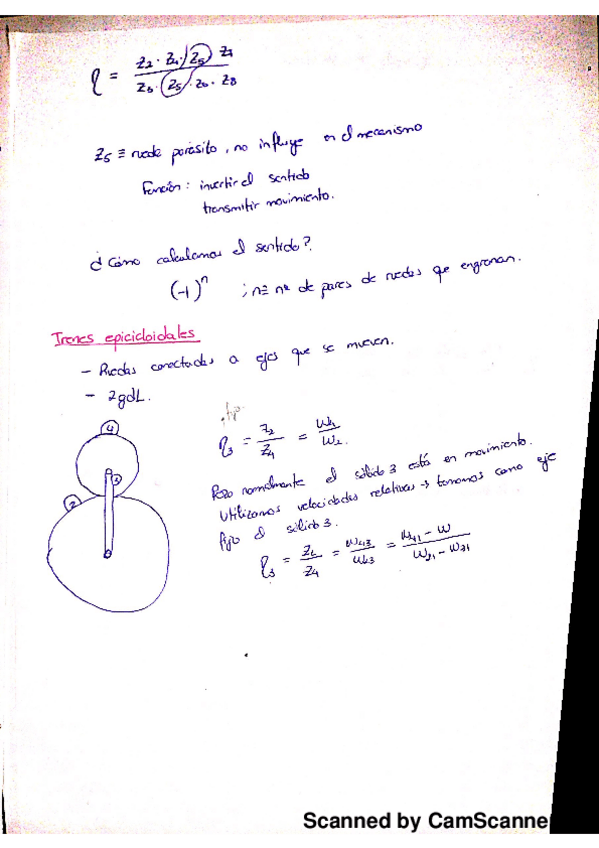 η = Z2 · Z4 · Z5 · Z7 / Z6 · Z5 · Z6 · Z8
Z5 ≡ rueda parásito, no influye en el mecanismo
Función: invertir el sentido
transmitir movimiento.
¿Cómo calculamos el sentido?
(-1)^n ; n ≡ nº de pares de ruedas que engranan.
Trenes epicicloidales
- Ruedas conectadas a ejes que se mueven.
- 2gdL.
4
3
2
fijo
η3 = Z2 / Z4 = ω4 / ω2.
Pero normalmente el sólido 3 está en movimiento.
Utilizamos velocidades relativas → tomamos como eje
fijo el sólido 3.
η3 = Z2 / Z4 = ω43 / ω23 = ω41 - ω / ω21 - ω31
Scanned by CamScanne